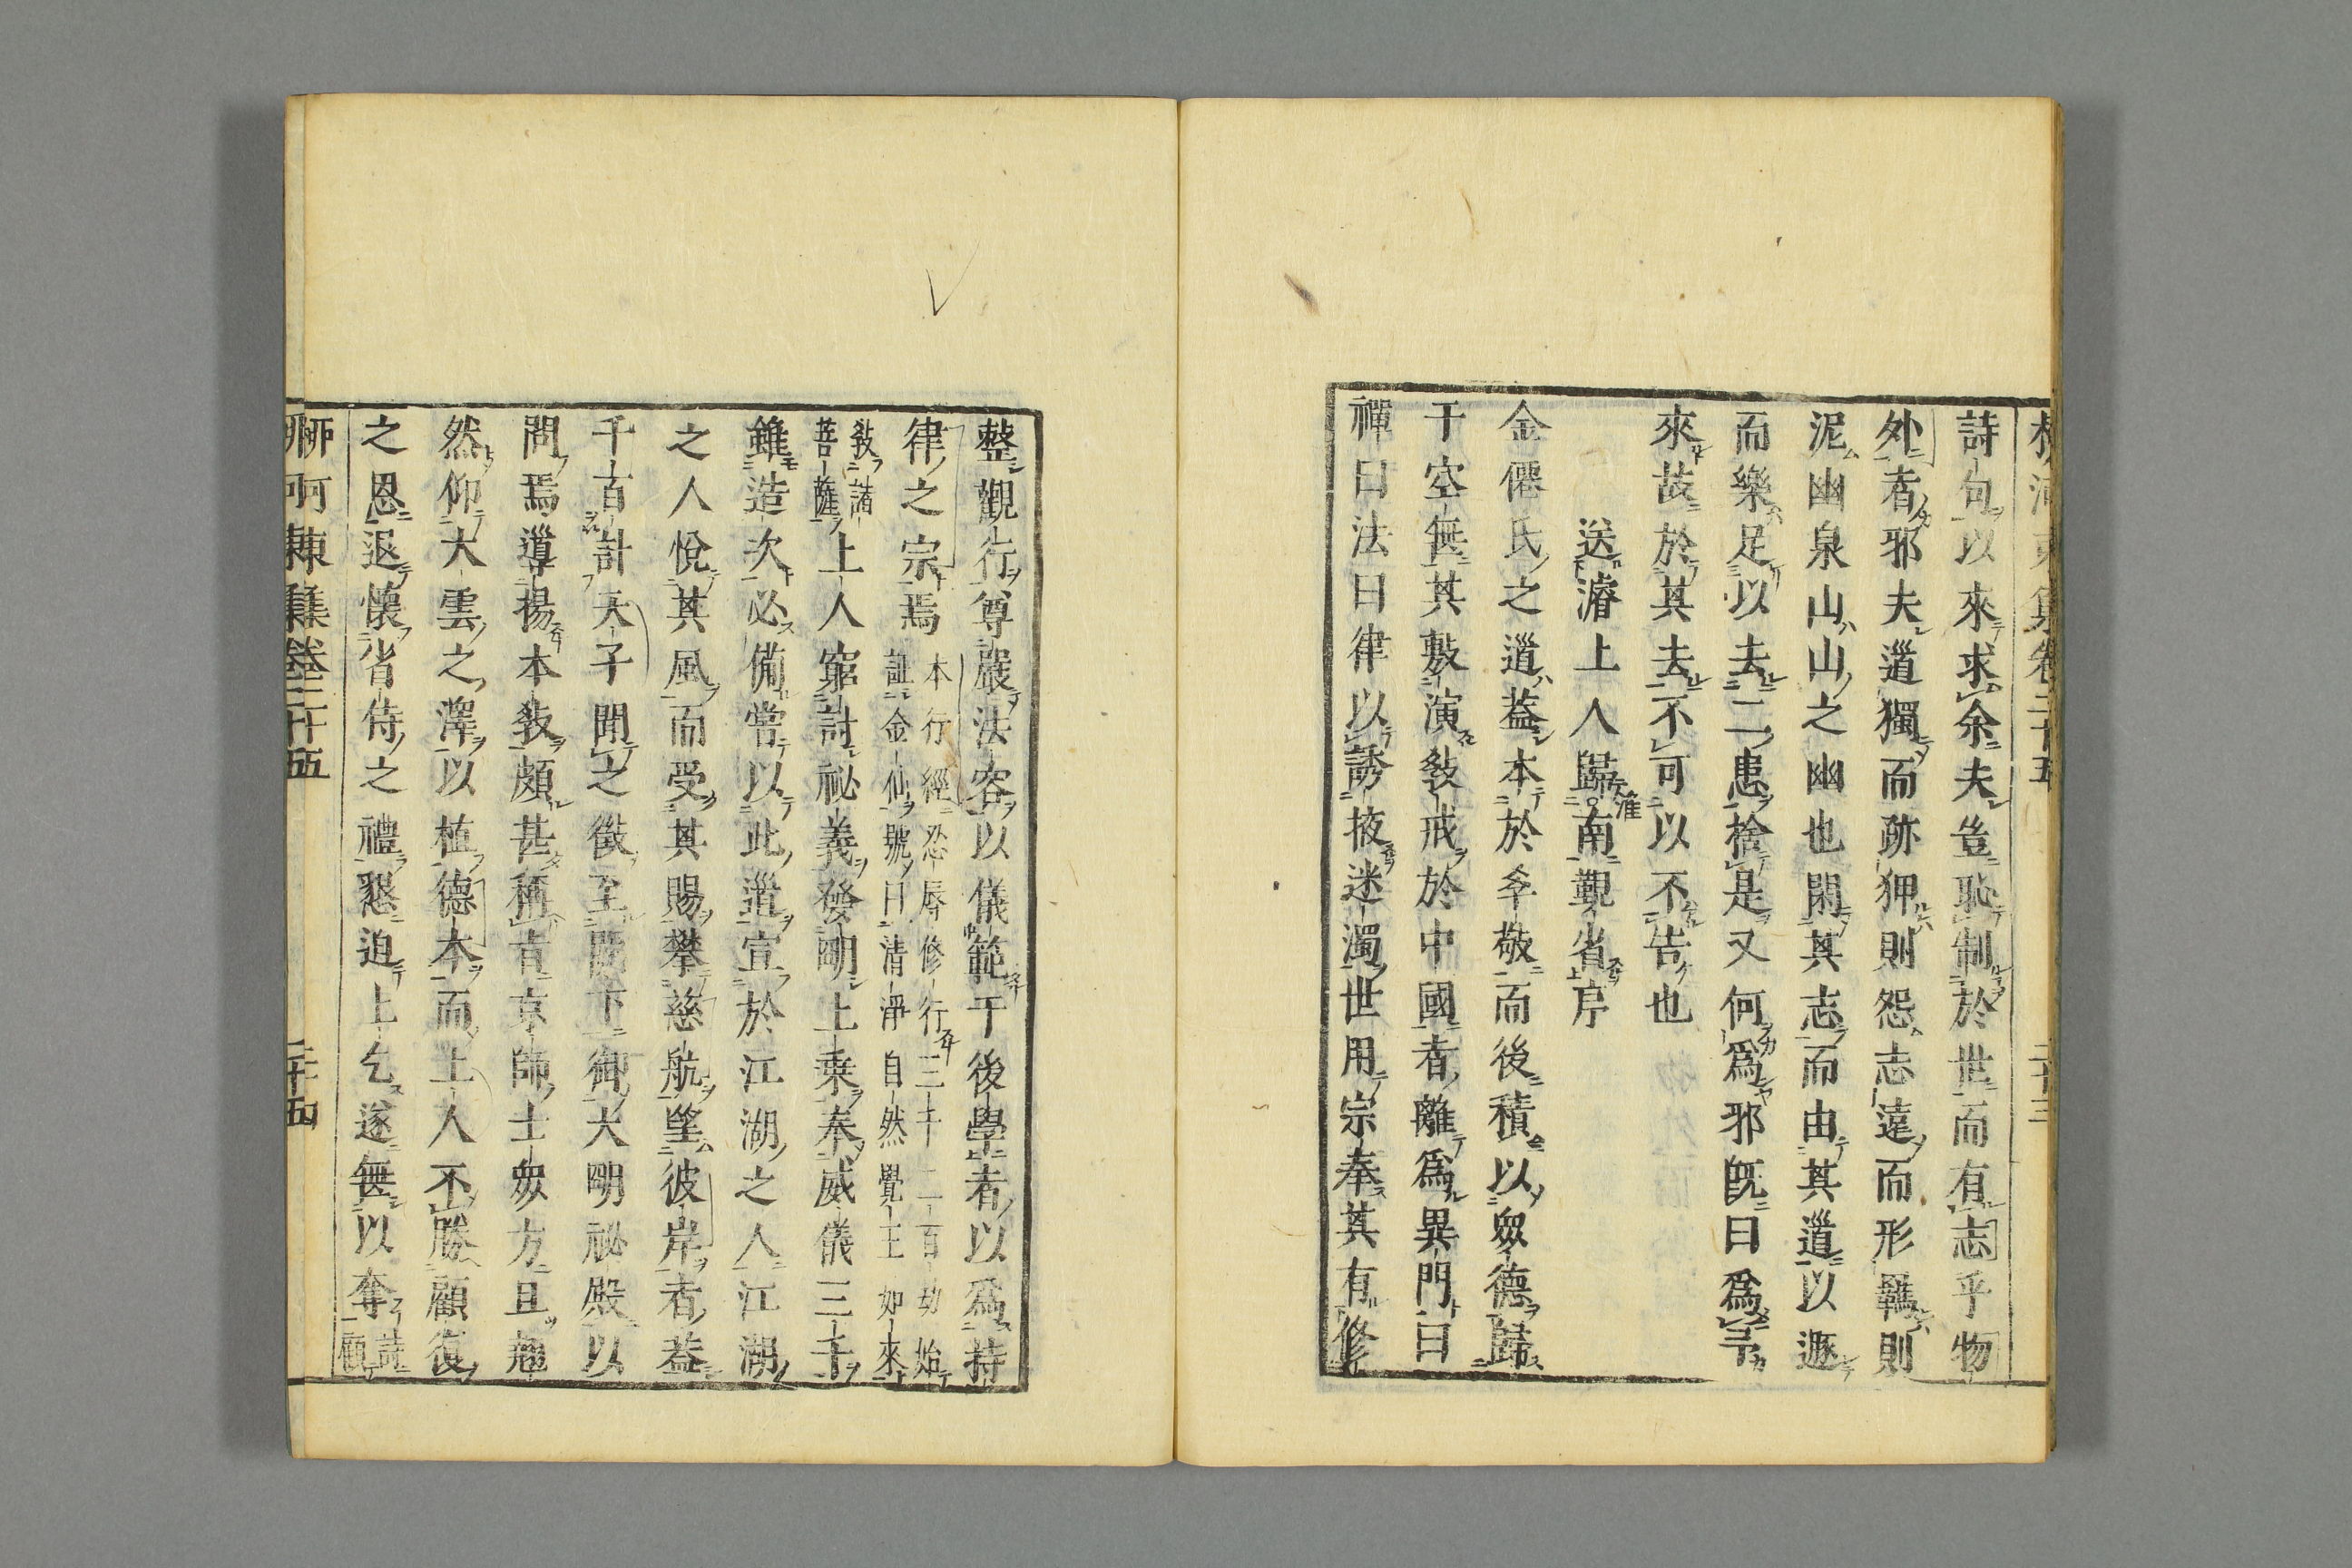 柳河東集卷二十五 二十三
詩句以來求余夫豈恥制於世而有志乎物
外者邪夫道獨而跡狎則怨志遠而形羈則
泥幽泉山山之幽也閑其志而由其道以遯
而樂足以去二患捨是又何爲邪既曰爲予
來故於其去不可以不告也
送濬上人歸淮南覲省序
金僊氏之道蓋本於孝敬而後積以衆德歸
于空無其敷演敎戒於中國者離爲異門曰
禪曰法曰律以誘掖迷濁世用宗奉其有修
整觀行尊嚴法容以儀範于後學者以爲持
律之宗焉 本行經忍辱修行三千二百劫始
証金仙號曰清淨自然覺王如來
敎諸
菩薩 上人窮討祕義發明上乘奉威儀三千
雖造次必備嘗以此道宣於江湖之人江湖
之人悅其風而受其賜攀慈航望彼岸者蓋
千百計天子聞之徵至闕下御大明祕殿以
問焉導揚本敎頗甚稱旨京師士衆方且翹
然仰大雲之澤以植德本而上人不勝顧復
之恩退懷省侍之禮懇迫上乞遂無以奪 詩
顧
柳河東集卷二十五 二十四